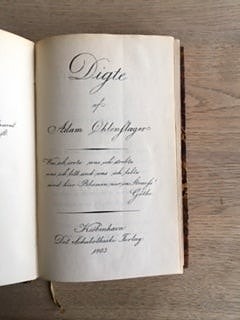 Digte
af
Adam Øhlenslager
Was ich irrte, was ich strebte
was ich litt und was ich lebte
sind hier Blumen nur im Strauss
Göthe.
Kiøbenhavn
Det Schubotheske Forlag
1903